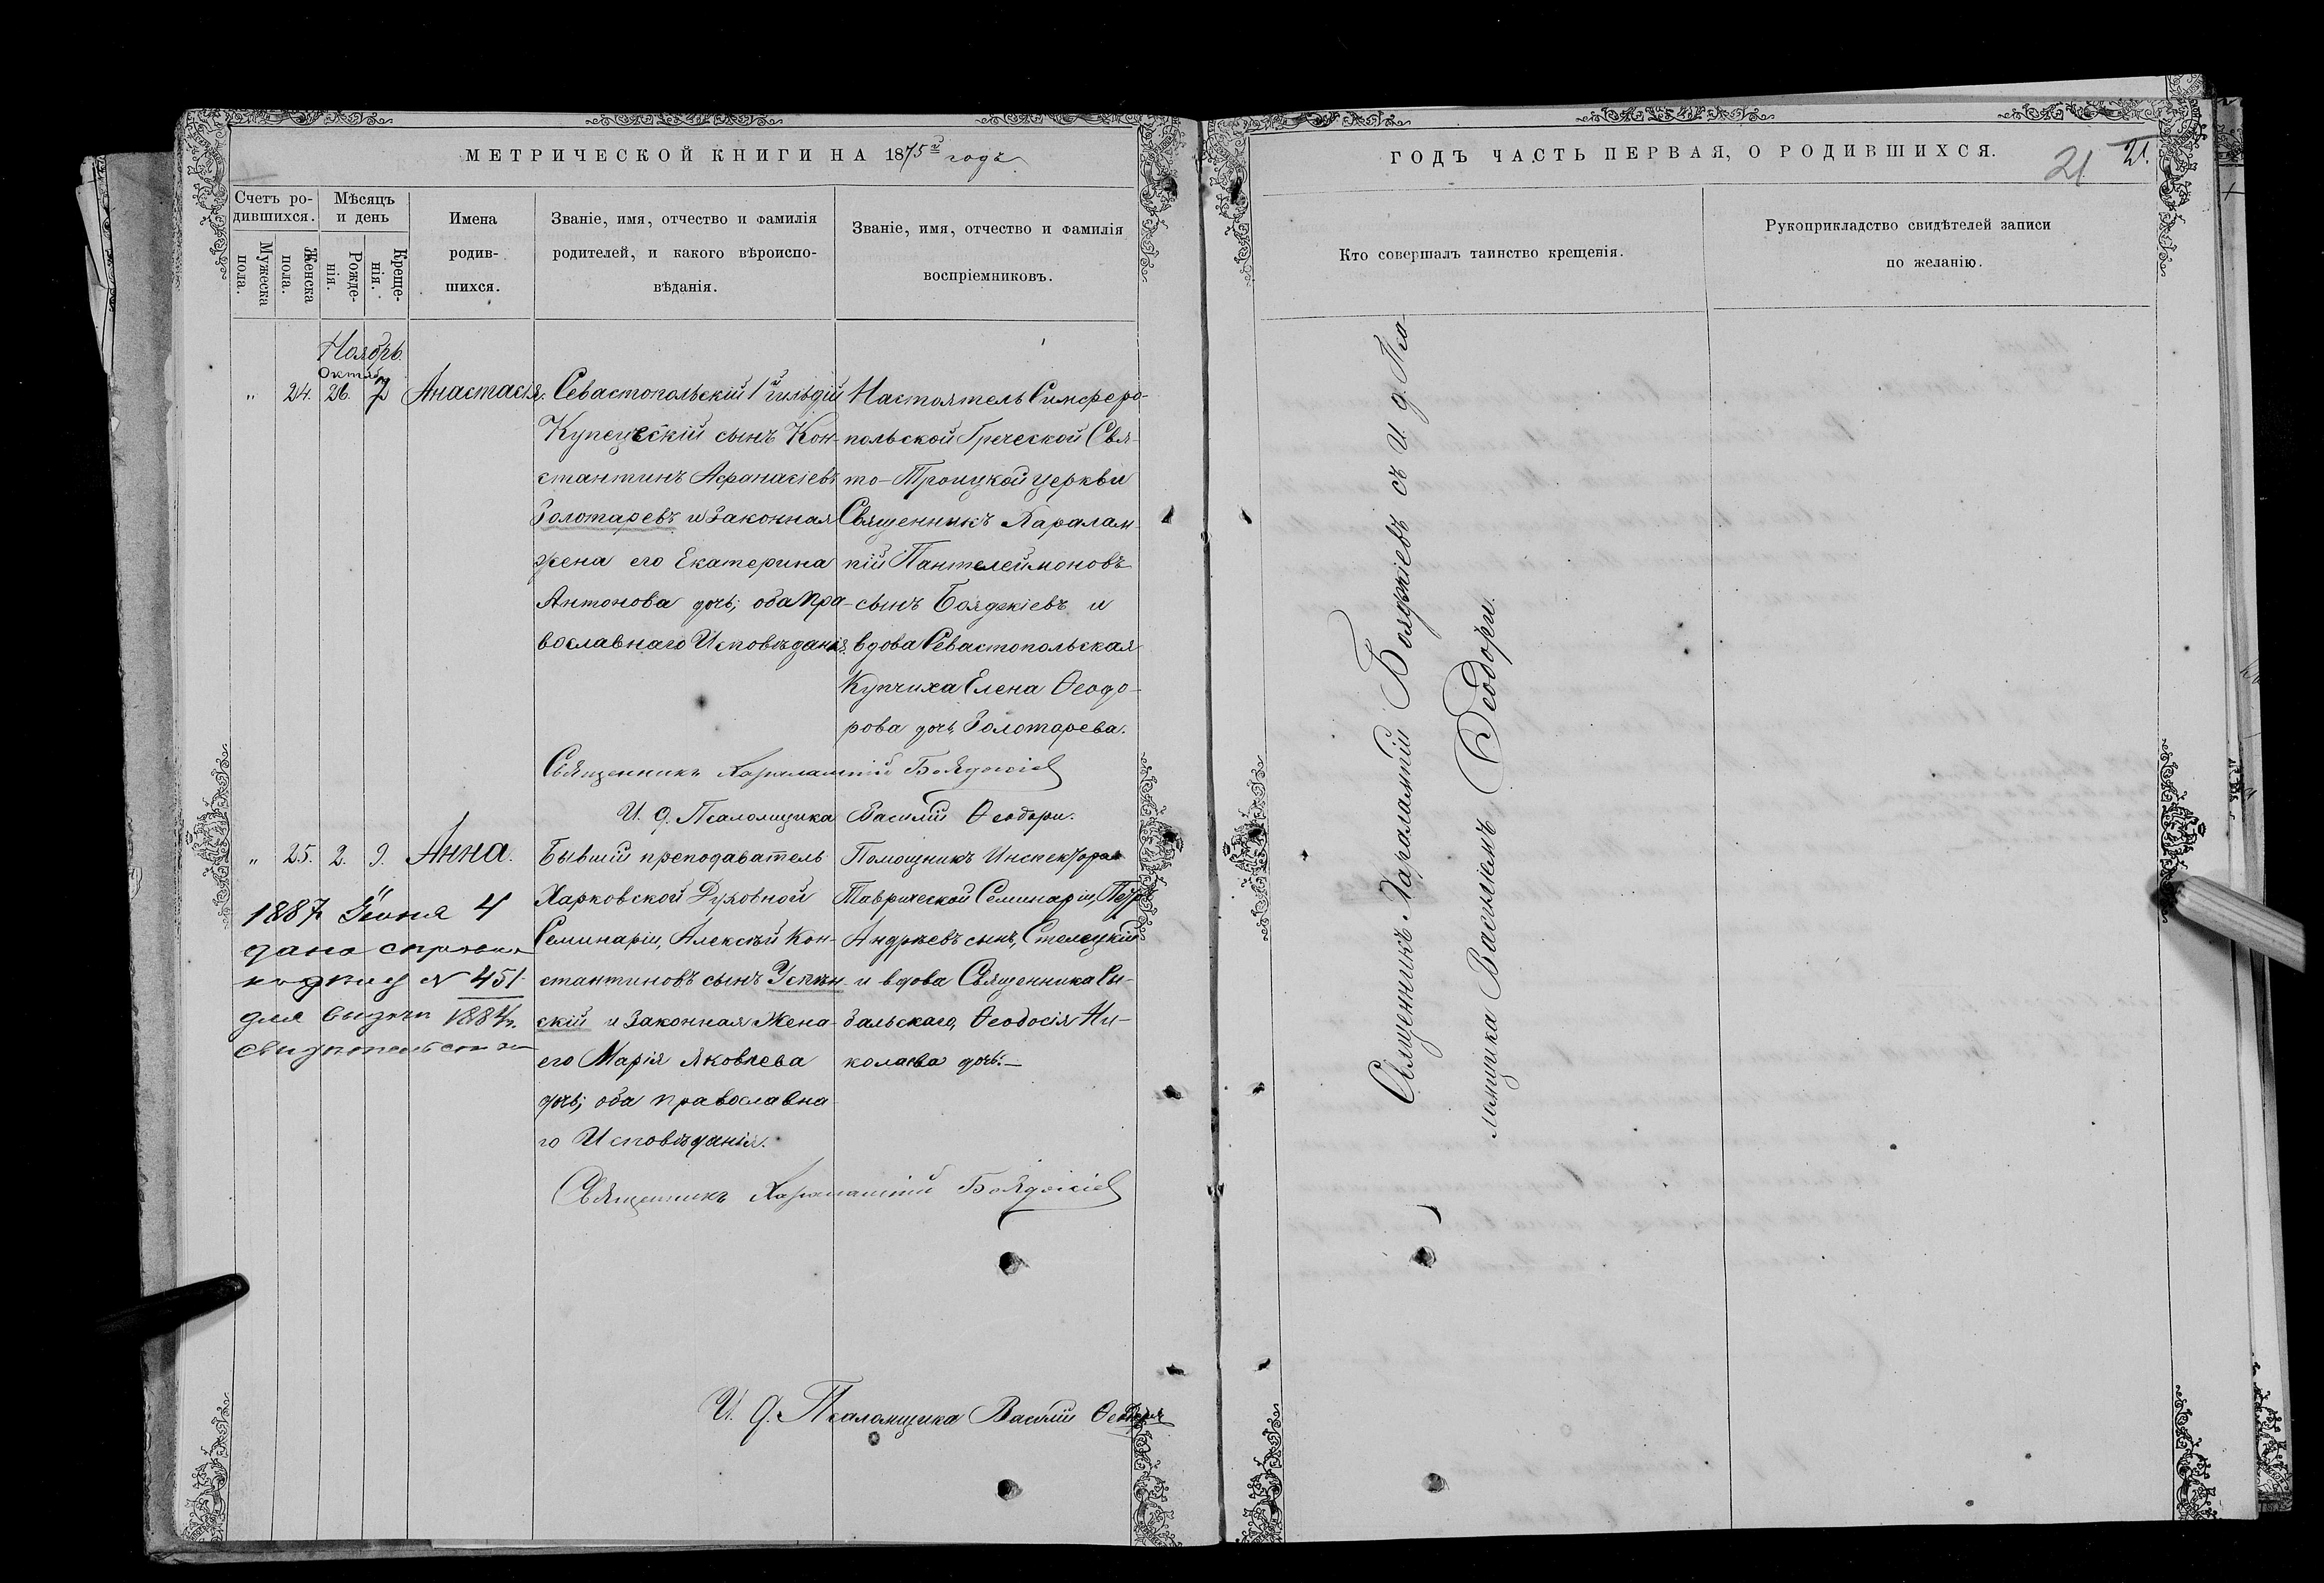 МЕТРИЧЕСКОЙ КНИГИ НА 1875й годъ.
Счетъ ро-
дившихся.
Мужеска
пола.
Женска
пола.
Мѣсяцъ
и день
Рожде-
нія.
Креще-
нія.
Имена
родив-
шихся.
Званіе, имя, отчество и фамилія
родителей, и какого вѣроиспо-
вѣданія.
Званіе, имя, отчество и фамилія
воспріемниковъ.
Ноябрь.
Октяб.
„ 24. 26. 7 Анастасія.
Севастопольскій 1й гильдій
Купеческій сынъ Кон-
стантинъ Афанасіевъ
Золотаревъ и Законная
жена его Екатерина
Антонова дочь; оба Пра-
вославнаго Исповѣданія.
Настоятель Симферо-
польской Греческой Свя-
то-Троицкой церкви
Священникъ Харалам-
пій Пантелеймоновъ
сынъ Бояджіевъ и
вдова Севастопольская
Купчиха Елена Ѳеодо-
рова дочь Золотарева.
Священникъ Харалампій Бояджіев
И. д. Псаломщика Василій Ѳеодори.
„ 25. 2. 9. Анна.
Бывшій преподаватель
Харковской Духовной
Семинаріи, Алексѣй Кон-
стантиновъ сынъ Успѣн-
скій и Законная Жена
его Марія Яковлева
дочь; оба православна-
го Исповѣданія.
Помощникъ Инспектора
Таврической Семинаріи, Петръ
Андреевъ сынъ, Стелецкій
и вдова Священника Си-
бальскаго, Ѳеодосія Ни-
колаева дочь.—
1887 Іюня 4
дано
№ 451
для выдачи 1884г.
Священникъ Харалампій Бояджіев
И. д. Псаломщика Василій Ѳеодори
ГОДЪ ЧАСТЬ ПЕРВАЯ, О РОДИВШИХСЯ.
21 21.
Кто совершалъ таинство крещенія.
Рукоприкладство свидѣтелей записи
по желанію.
Священникъ Харалампій Бояджіевъ съ И. д. Пса-
ломщика Васильемъ Ѳеодори.